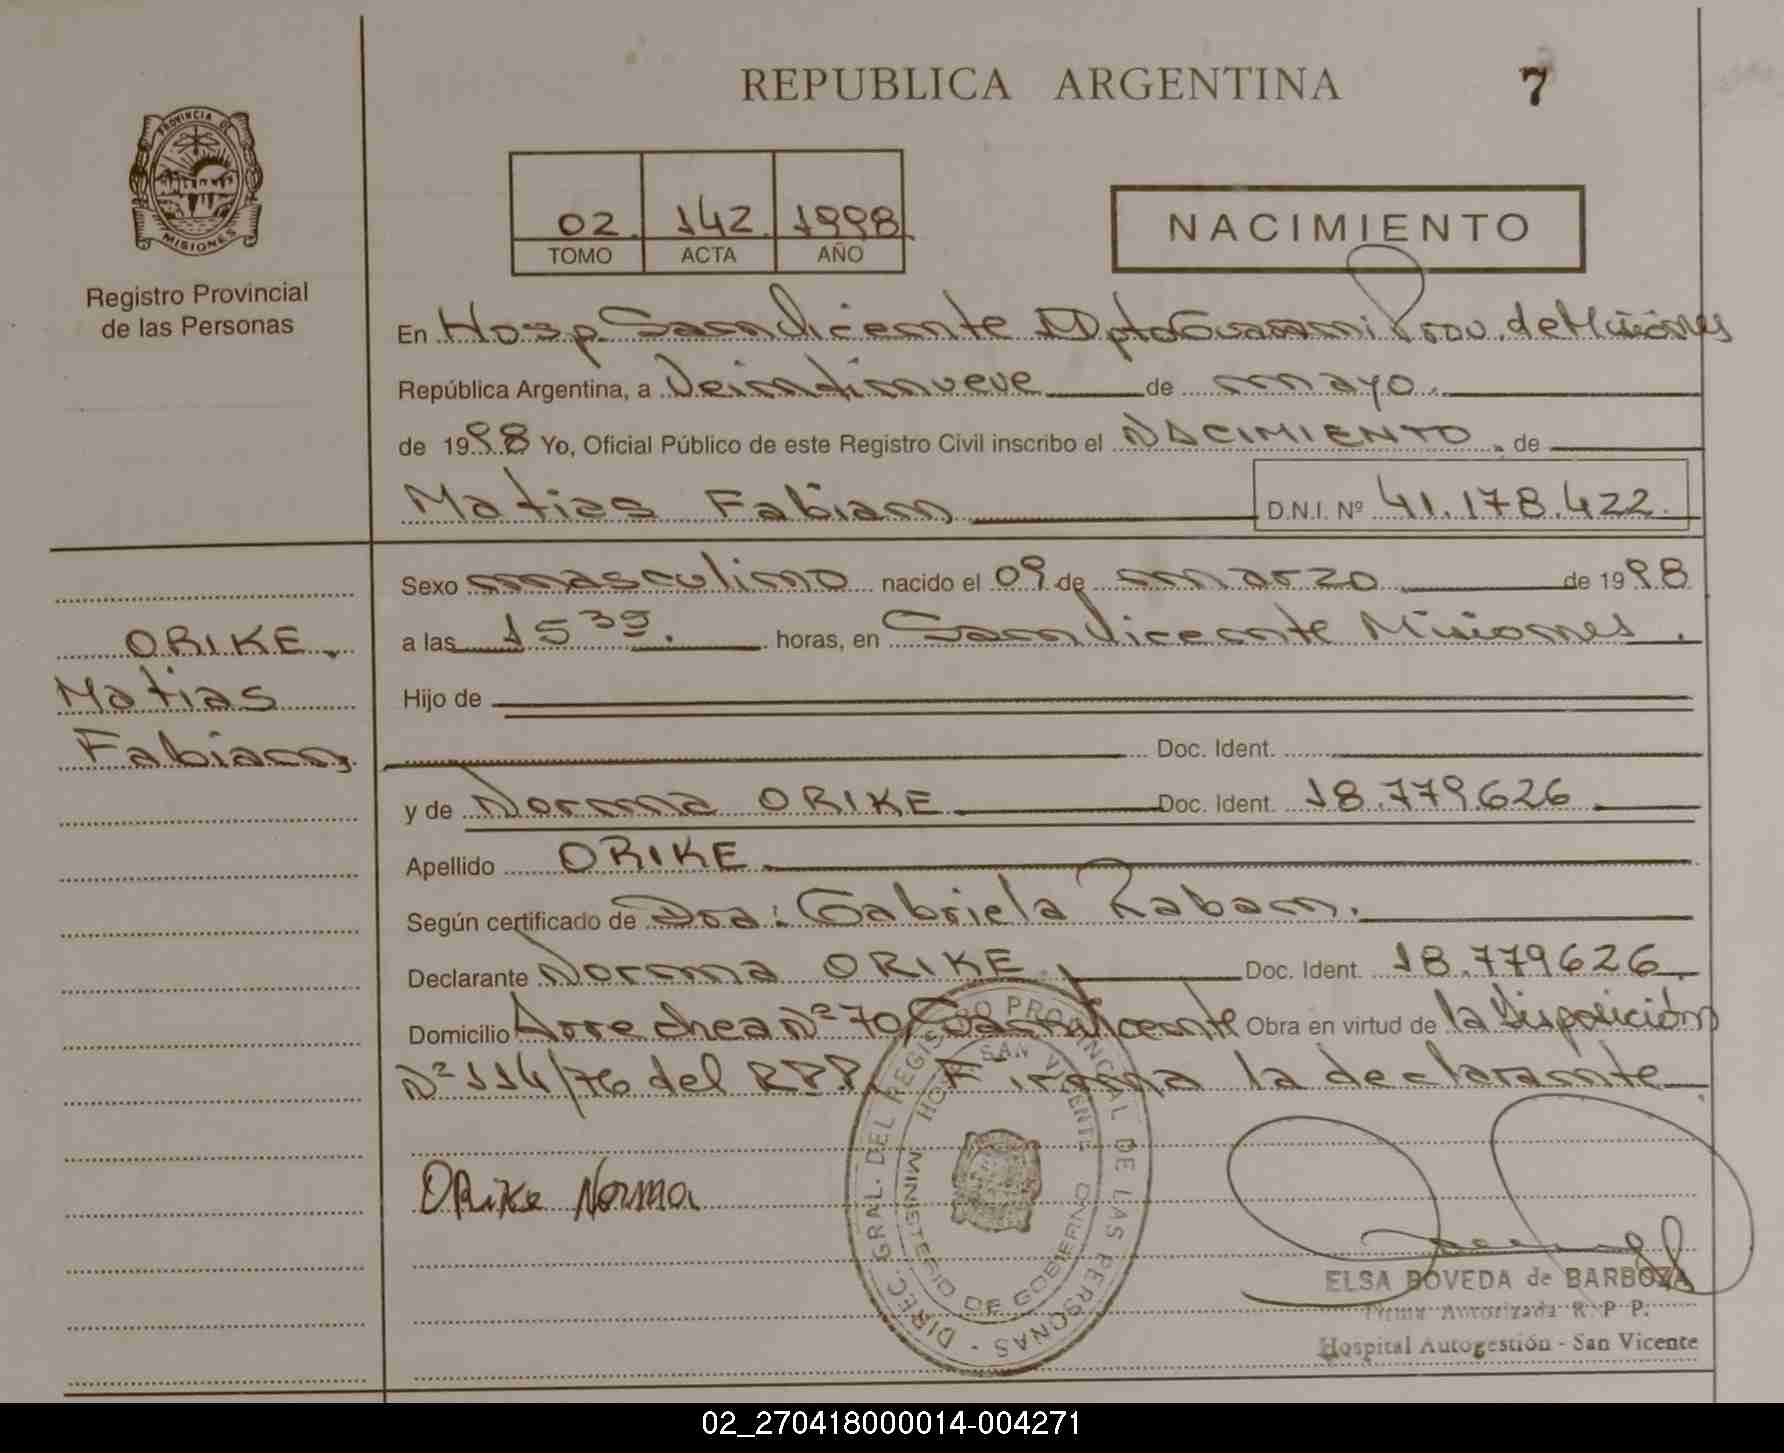 REPUBLICA ARGENTINA
7
PROVINCIA DE
MISIONES
Registro Provincial
de las Personas
02 142 1998
TOMO ACTA AÑO
NACIMIENTO
En Hosp. San Vicente Dpto Guarani Prov. de Misiones
República Argentina, a Veintinueve de mayo.
de 1998 Yo, Oficial Público de este Registro Civil inscribo el NACIMIENTO. de
Matias Fabian D.N.I. Nº 41.178.422.
Sexo masculino nacido el 09 de marzo de 1998
a las 15 horas, en San Vicente Misiones.
Hijo de
Doc. Ident.
y de Norma ORIKE Doc. Ident. 18.779626
Apellido ORIKE
Según certificado de Dra: Gabriela Raban.
Declarante Norma ORIKE. Doc. Ident. 18.779626.
Domicilio Arrechea Nº 70, San Vicente Obra en virtud de la Disposición
Nº 114/76 del R.P.P. Firma la declarante
ORIKE.
Matias
Fabian,
ORike Norma
DIREC. GRAL. DEL REGISTRO PROVINCIAL DE LAS PERSONAS
SAN VICENTE
MINISTERIO DE GOBIERNO
ELSA BOVEDA de BARBOZA
Firma Autorizada R. P. P.
Hospital Autogestión - San Vicente
02_270418000014-004271